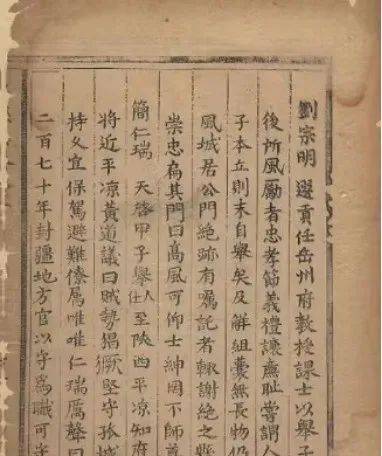 劉宗明 選貢任岳州府教授課士以舉子
後所風勵者忠孝節義禮讓廉恥嘗謂人
子本立則末自舉矣及解組囊無長物仍
風城居公門絶跡有囑託者輙謝絶之縣
崇忠扁其門曰高風可仰士紳罔不師尊
簡仁瑞 天啓甲子舉人仕至陝西平凉知府
將近平凉黃道議曰賊勢猖獗堅守孤城
持久宜保駕避難僚屬唯唯仁瑞厲聲曰
二百七十年封疆地方官以守爲職可守